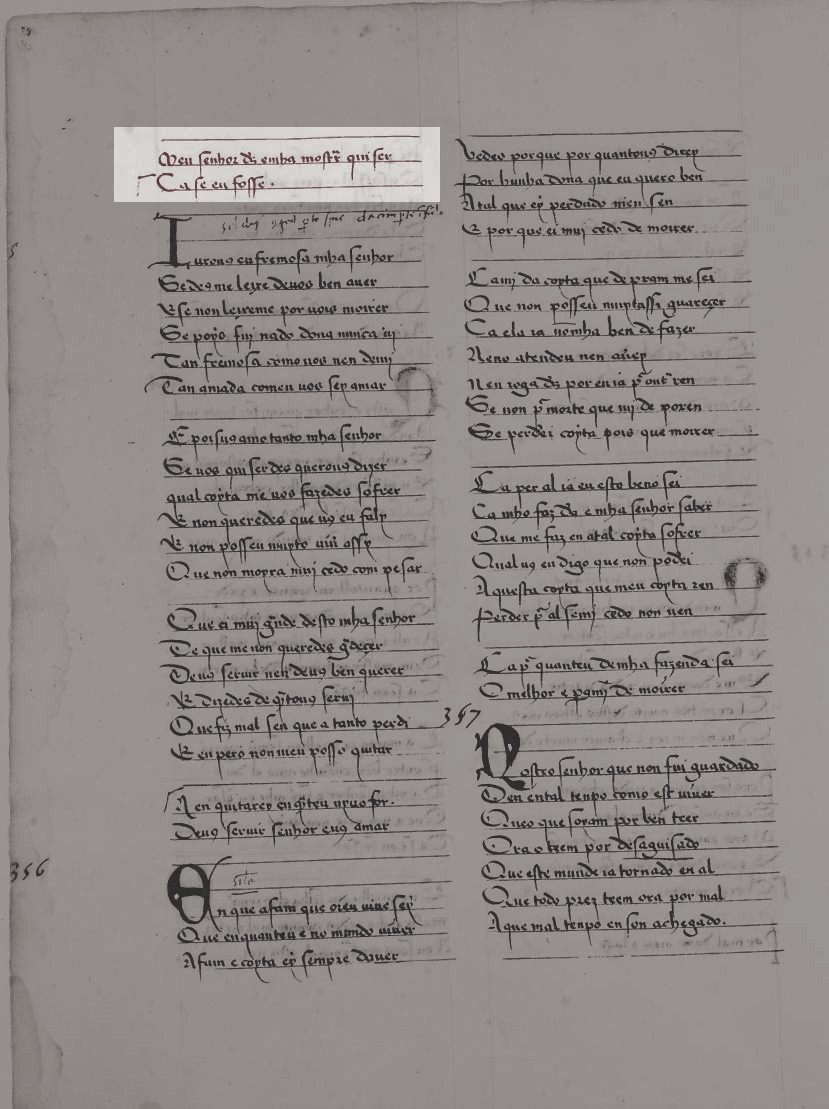 Meu senhor ds̄ emha mostr̄ qui ser
Ca se eu fosse.
Iurouo eu fremosa mha senhor
Se deo me leixe deuos ben auer
E se non leixeme por uos morrer
Se poys fuy nado dona nunca ui
Tan fremosa como uos nen deui
Tan amada comeu uos sey amar
E poisuos amo tanto mha senhor
Se uos quiserdes querouꝯ dizer
qual coyta me uos fazedes sofrer
E non queredes que uꝯ eu faly
E non posseu muyto uiui assy
Que non moyra muy cedo com pesar
Que ei muy gnde desto mha senhor
De que me non queredes gdeçer
Deuꝯ seruir nen deuꝯ ben querer
E dizedes de qntouꝯ serui
Que fiz mal sen que a tanto perdi
E eu pero non meu posso quitar
Nen quitarey enqnteu uyuo for.
Deuꝯ seruir senhor euꝯ amar
356
En que afam que oieu uiue sey
Que enquanteu e no mundo uiuer
Afam e coyta ey sempre dauer
Vedes porque por quantouꝯ direy
Por hunha dona que eu quero ben
Atal que ey perdudo meu sen
E por que ei muy cedo de morrer.
Camj da coyta que de pram me sei
Que non posseu muytassy guareçer
Ca ela ia nomha ben de fazer
Neno atendeu nen auiey
Nen roga ds̄ por en ia pont ren
Se non p morte que mj de poren
Se perdei coyta pois que morrer
Ca per al ia eu esto beno sei
Ca mho faz ds̄ e mha senhor saber
Que me faz en atal coyta sofrer
Qual uꝯ eu digo que non podei
Aquesta coyta que meu coyta ren
Perder p al semj cedo non uen
Ca p quanteu demha fazenda sei
O melhor e pamj de morrer
357
Nostro senhor que non fui guardado
Den ental tenpo como est uiuer
Queo que soram por ben teer
Ora o teem por desaguisado
Que este mundo ia tornado en al
Que todo prez teem ora por mal
A que mal tenpo en son achegado.